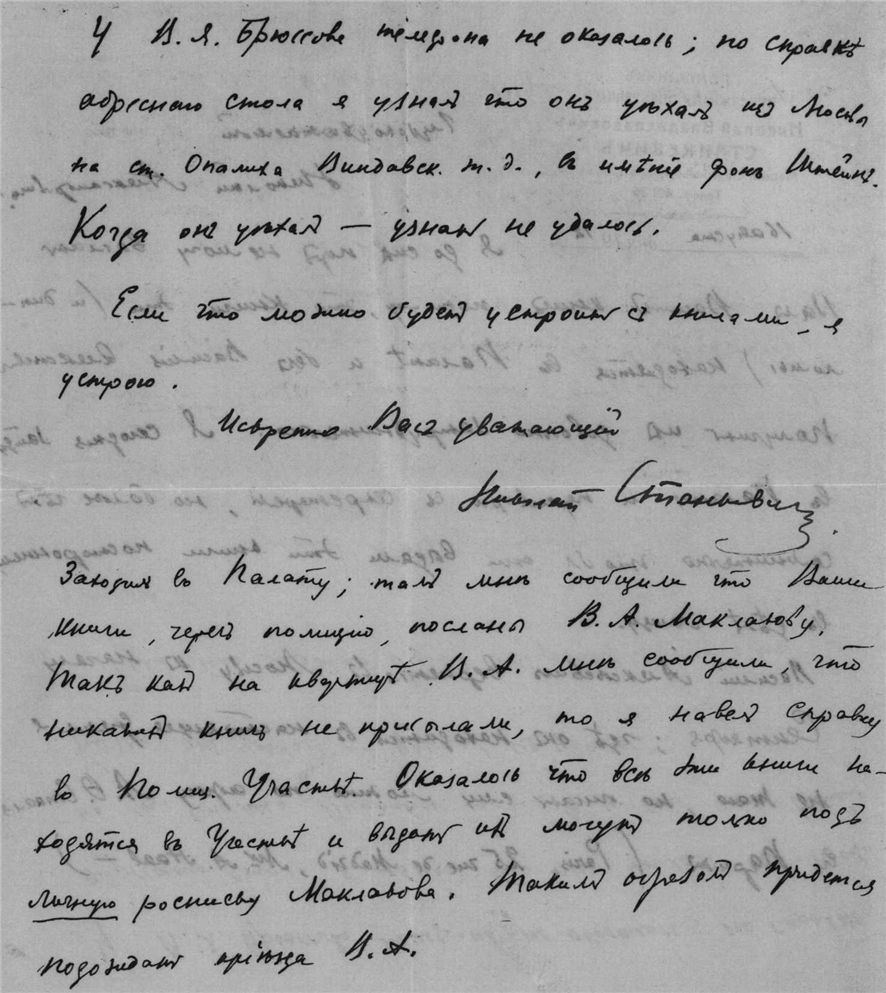 У В. Я. Брюсова телефона не оказалось; по справкѣ
адреснаго стола я узналъ что онъ уѣхалъ изъ Москвы
на ст. Опалиха Виндавск. ж. д., въ имѣніе фонъ Штейнъ.
Когда онъ уѣхалъ — узнать не удалось.
Если что можно будетъ устроить съ книгами, я
устрою.
Искренно Васъ уважающій
Николай Станкевич
Заходилъ въ Палату; тамъ мнѣ сообщили что Ваши
книги, черезъ полицію, посланы В. А. Маклакову.
Такъ какъ на квартирѣ В. А. мнѣ сообщили, что
никакихъ книгъ не присылали, то я навелъ справку
въ Полиц. Участкѣ. Оказалось что всѣ эти книги на-
ходятся въ Участкѣ и выдать ихъ могутъ только подъ
личную росписку Маклакова. Такимъ образомъ придется
подождать пріѣзда В. А.